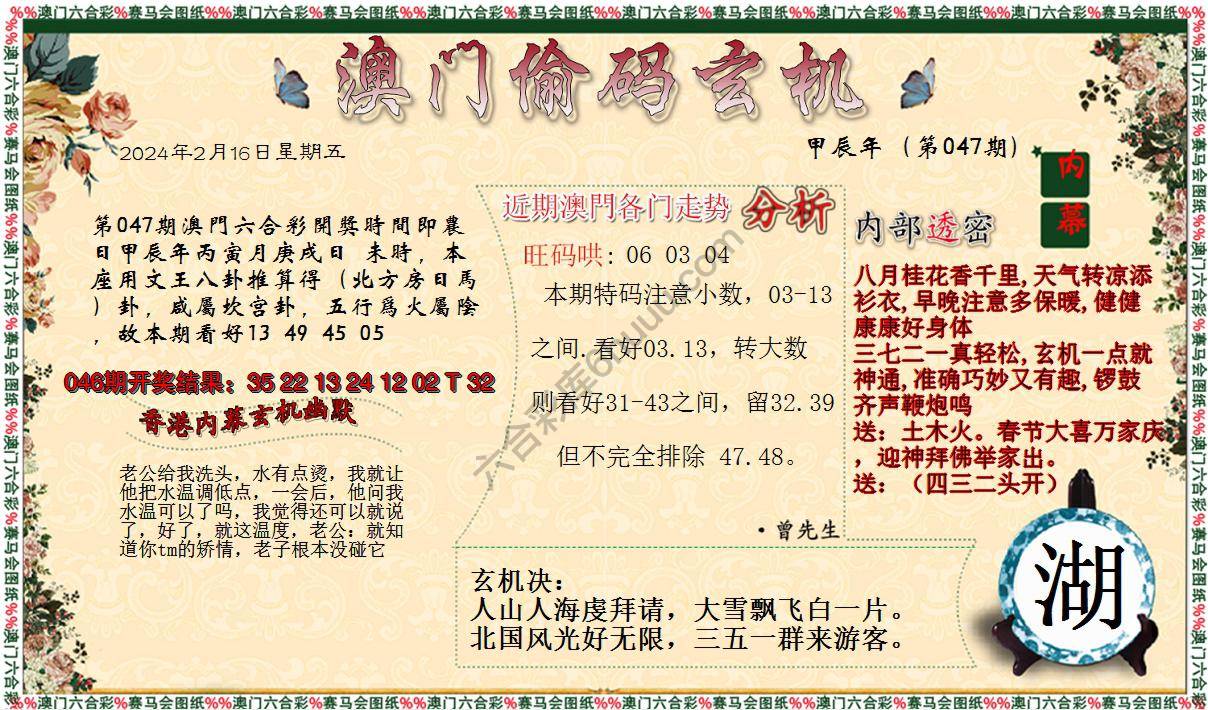 %%澳门六合彩%赛马会图纸%%澳门六合彩%赛马会图纸%%澳门六合彩%赛马会图纸%%澳门六合彩%赛马会图纸%%澳门六合彩%赛马会图纸%%澳门六合彩%赛马会图纸%%
澳门偷码玄机
2024年2月16日星期五
甲辰年（第047期）
内
幕
第047期澳門六合彩開獎時間即農
日甲辰年丙寅月庚戌日 未時，本
座用文王八卦推算得（北方房日馬
）卦，咸屬坎宫卦，五行爲火屬陰
，故本期看好13 49 45 05
046期开奖结果：35 22 13 24 12 02 T 32
香港内幕玄机幽默
老公给我洗头，水有点烫，我就让
他把水温调低点，一会后，他问我
水温可以了吗，我觉得还可以就说
了，好了，就这温度，老公：就知
道你tm的矫情，老子根本没碰它
近期澳門各门走势 分析
旺码哄: 06 03 04
本期特码注意小数，03-13
之间.看好03.13，转大数
则看好31-43之间，留32.39
但不完全排除 47.48。
·曾先生
六合彩库6huuu.com
内部透密
八月桂花香千里,天气转凉添
衫衣,早晚注意多保暖,健健
康康好身体
三七二一真轻松,玄机一点就
神通,准确巧妙又有趣,锣鼓
齐声鞭炮鸣
送：土木火。春节大喜万家庆
，迎神拜佛举家出。
送：（四三二头开）
玄机决：
人山人海虔拜请，大雪飘飞白一片。
北国风光好无限，三五一群来游客。
湖
%%澳门六合彩%赛马会图纸%%澳门六合彩%赛马会图纸%%澳门六合彩%赛马会图纸%%澳门六合彩%赛马会图纸%%澳门六合彩%赛马会图纸%%澳门六合彩%赛马会图纸%%